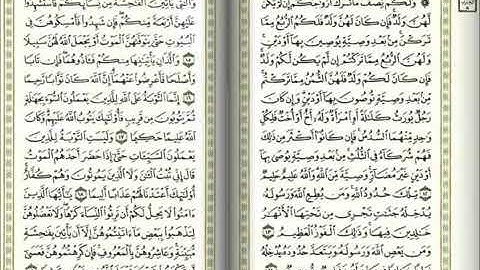 ۞ وَلَكُمْ نِصْفُ مَا تَرَكَ أَزْوَٰجُكُمْ إِن لَّمْ يَكُن
لَّهُنَّ وَلَدٌ فَإِن كَانَ لَهُنَّ وَلَدٌ فَلَكُمُ ٱلرُّبُعُ مِمَّا
تَرَكْنَ مِنۢ بَعْدِ وَصِيَّةٍ يُوصِينَ بِهَآ أَوْ دَيْنٍ
وَلَهُنَّ ٱلرُّبُعُ مِمَّا تَرَكْتُمْ إِن لَّمْ يَكُن لَّكُمْ وَلَدٌ
فَإِن كَانَ لَكُمْ وَلَدٌ فَلَهُنَّ ٱلثُّمُنُ مِمَّا تَرَكْتُم
مِّنۢ بَعْدِ وَصِيَّةٍ تُوصُونَ بِهَآ أَوْ دَيْنٍ وَإِن كَانَ
رَجُلٌ يُورَثُ كَلَٰلَةً أَوِ ٱمْرَأَةٌ وَلَهُۥٓ أَخٌ أَوْ أُخْتٌ فَلِكُلِّ
وَٰحِدٍ مِّنْهُمَا ٱلسُّدُسُ فَإِن كَانُوٓا۟ أَكْثَرَ مِن ذَٰلِكَ
فَهُمْ شُرَكَآءُ فِى ٱلثُّلُثِ مِنۢ بَعْدِ وَصِيَّةٍ يُوصَىٰ بِهَآ
أَوْ دَيْنٍ غَيْرَ مُضَآرٍّ وَصِيَّةً مِّنَ ٱللَّهِ وَٱللَّهُ عَلِيمٌ حَلِيمٌ
١٢ تِلْكَ حُدُودُ ٱللَّهِ وَمَن يُطِعِ ٱللَّهَ وَرَسُولَهُۥ
يُدْخِلْهُ جَنَّٰتٍ تَجْرِى مِن تَحْتِهَا ٱلْأَنْهَٰرُ
خَٰلِدِينَ فِيهَا وَذَٰلِكَ ٱلْفَوْزُ ٱلْعَظِيمُ ١٣
وَمَن يَعْصِ ٱللَّهَ وَرَسُولَهُۥ وَيَتَعَدَّ حُدُودَهُۥ يُدْخِلْهُ
وَٱلَّٰتِى يَأْتِينَ ٱلْفَٰحِشَةَ مِن نِّسَآئِكُمْ فَٱسْتَشْهِدُوا۟
عَلَيْهِنَّ أَرْبَعَةً مِّنكُمْ فَإِن شَهِدُوا۟ فَأَمْسِكُوهُنَّ فِى
ٱلْبُيُوتِ حَتَّىٰ يَتَوَفَّىٰهُنَّ ٱلْمَوْتُ أَوْ يَجْعَلَ ٱللَّهُ لَهُنَّ سَبِيلًا
١٥ وَٱلَّذَانِ يَأْتِيَٰنِهَا مِنكُمْ فَـَٔاذُوهُمَا فَإِن تَابَا
وَأَصْلَحَا فَأَعْرِضُوا۟ عَنْهُمَآ إِنَّ ٱللَّهَ كَانَ تَوَّابًا رَّحِيمًا
١٦ إِنَّمَا ٱلتَّوْبَةُ عَلَى ٱللَّهِ لِلَّذِينَ يَعْمَلُونَ ٱلسُّوٓءَ بِجَهَٰلَةٍ
ثُمَّ يَتُوبُونَ مِن قَرِيبٍ فَأُو۟لَٰٓئِكَ يَتُوبُ ٱللَّهُ عَلَيْهِمْ وَكَانَ
ٱللَّهُ عَلِيمًا حَكِيمًا ١٧ وَلَيْسَتِ ٱلتَّوْبَةُ لِلَّذِينَ
يَعْمَلُونَ ٱلسَّيِّـَٔاتِ حَتَّىٰٓ إِذَا حَضَرَ أَحَدَهُمُ ٱلْمَوْتُ
قَالَ إِنِّى تُبْتُ ٱلْـَٰٔنَ وَلَا ٱلَّذِينَ يَمُوتُونَ وَهُمْ كُفَّارٌ
أُو۟لَٰٓئِكَ أَعْتَدْنَا لَهُمْ عَذَابًا أَلِيمًا ١٨ يَٰٓأَيُّهَا ٱلَّذِينَ
ءَامَنُوا۟ لَا يَحِلُّ لَكُمْ أَن تَرِثُوا۟ ٱلنِّسَآءَ كَرْهًا وَلَا تَعْضُلُوهُنَّ
لِتَذْهَبُوا۟ بِبَعْضِ مَآ ءَاتَيْتُمُوهُنَّ إِلَّآ أَن يَأْتِينَ بِفَٰحِشَةٍ
مُّبَيِّنَةٍ وَعَاشِرُوهُنَّ بِٱلْمَعْرُوفِ فَإِن كَرِهْتُمُوهُنَّ فَعَسَىٰٓ